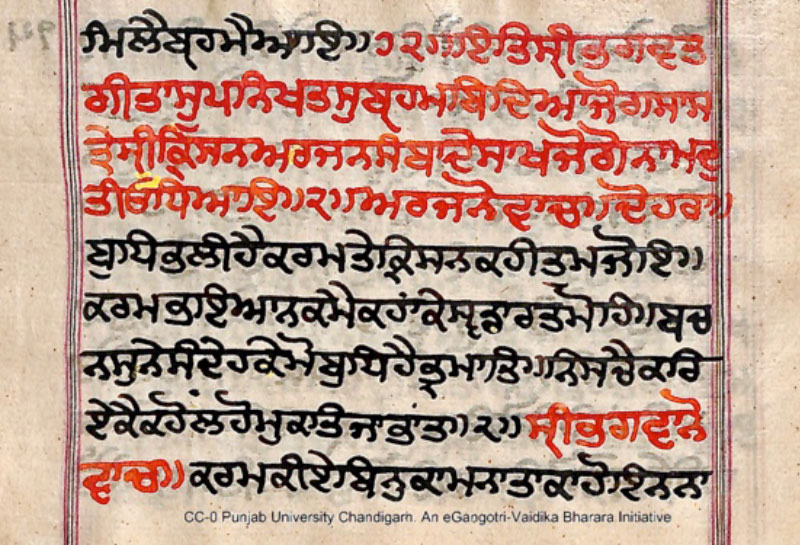 ਮਿਲੈਬ੍ਰਹਮੈਆਇ॥੭੨॥ਇਤਿਸ੍ਰੀਭਗਵਤ
ਗੀਤਾਸੁਪਨਿਖਤਸੁਬ੍ਰਹਮਬਿਦਿਆਜੋਗਸਾਸ
ਤ੍ਰੇਸ੍ਰੀਕ੍ਰਿਸਨਅਰਜਨਸੰਬਾਦੇਸਾਖਜੋਗੋਨਾਮਦੁ
ਤੀਓਧਿਆਇ॥੨॥ਅਰਜਨੋਵਾਚ॥ਦੋਹਰਾ॥
ਬੁਧਿਭਲੀਹੈਕਰਮਤੇਕ੍ਰਿਸਨਕਹੀਤੁਮਜੋਇ॥
ਕਰਮਭਾਇਆਨਕਮੈਕਹਾਂਕੇਸ੍ਵਾਰਤਮੋਹਿ॥੧॥ਬਚ
ਨਸੁਨੇਸੰਦੇਹਕੇਮੋਬੁਧਿਹੈਭ੍ਰਮਾਤਿ॥ਨਿਸਚੈਕਰਿ
ਏਕੈਕਹੋਲਹੋਮੁਕਤਿਜਾਭਾਂਤ॥੨॥ਸ੍ਰੀਭਗਵਾਨੋ
ਵਾਚ॥ਕਰਮਕੀਏਬਿਨੁਕਾਮਨਾਤਾਕਾਹੋਇਨਨਾ
CC-0 Punjab University Chandigarh. An eGangotri-Vaidika Bharara Initiative